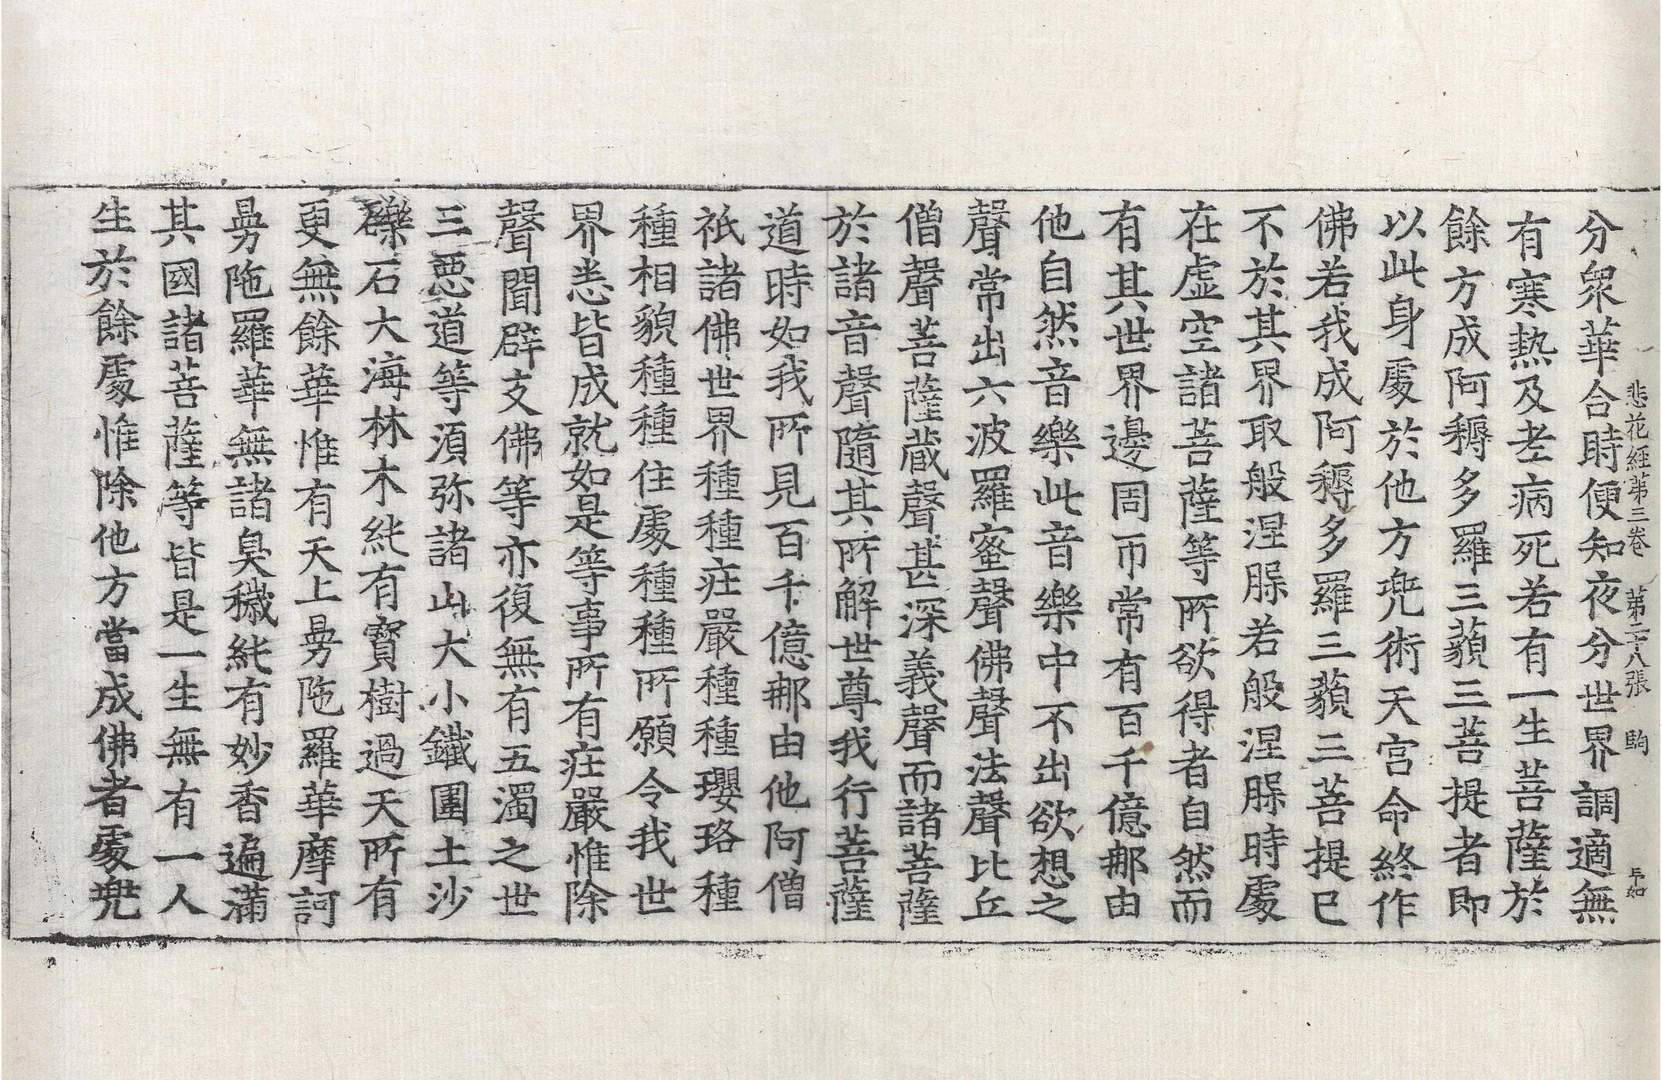 悲花経苐三卷 苐二十八張 駒
分衆華合時便知夜分世界調適無
有寒熱及老病死若有一生菩薩於
餘方成阿耨多羅三藐三菩提者即
以此身處於他方兜術天宫命終作
佛若我成阿耨多羅三藐三菩提已
不於其界取般涅槃若般涅槃時處
在虛空諸菩薩等所欲得者自然而
有其世界邊周帀常有百千億那由
他自然音樂此音樂中不出欲想之
聲常出六波羅蜜聲佛聲法聲比丘
僧聲菩薩蔵聲甚深義聲而諸菩薩
於諸音聲隨其所解世尊我行菩薩
道時如我所見百千億那由他阿僧
祇諸佛世界種種莊嚴種種瓔珞種
種相貌種種住處種種所願令我世
界悉皆成就如是等事所有莊嚴惟除
聲聞辟支佛等亦復無有五濁之世
三惡道等須弥諸山大小鐵圍土沙
礫石大海林木純有寶樹過天所有
更無餘華惟有天上曼陁羅華摩訶
曼陁羅華無諸臭穢純有妙香遍滿
其國諸菩薩等皆是一生無有一人
生於餘處惟除他方當成佛者處兜